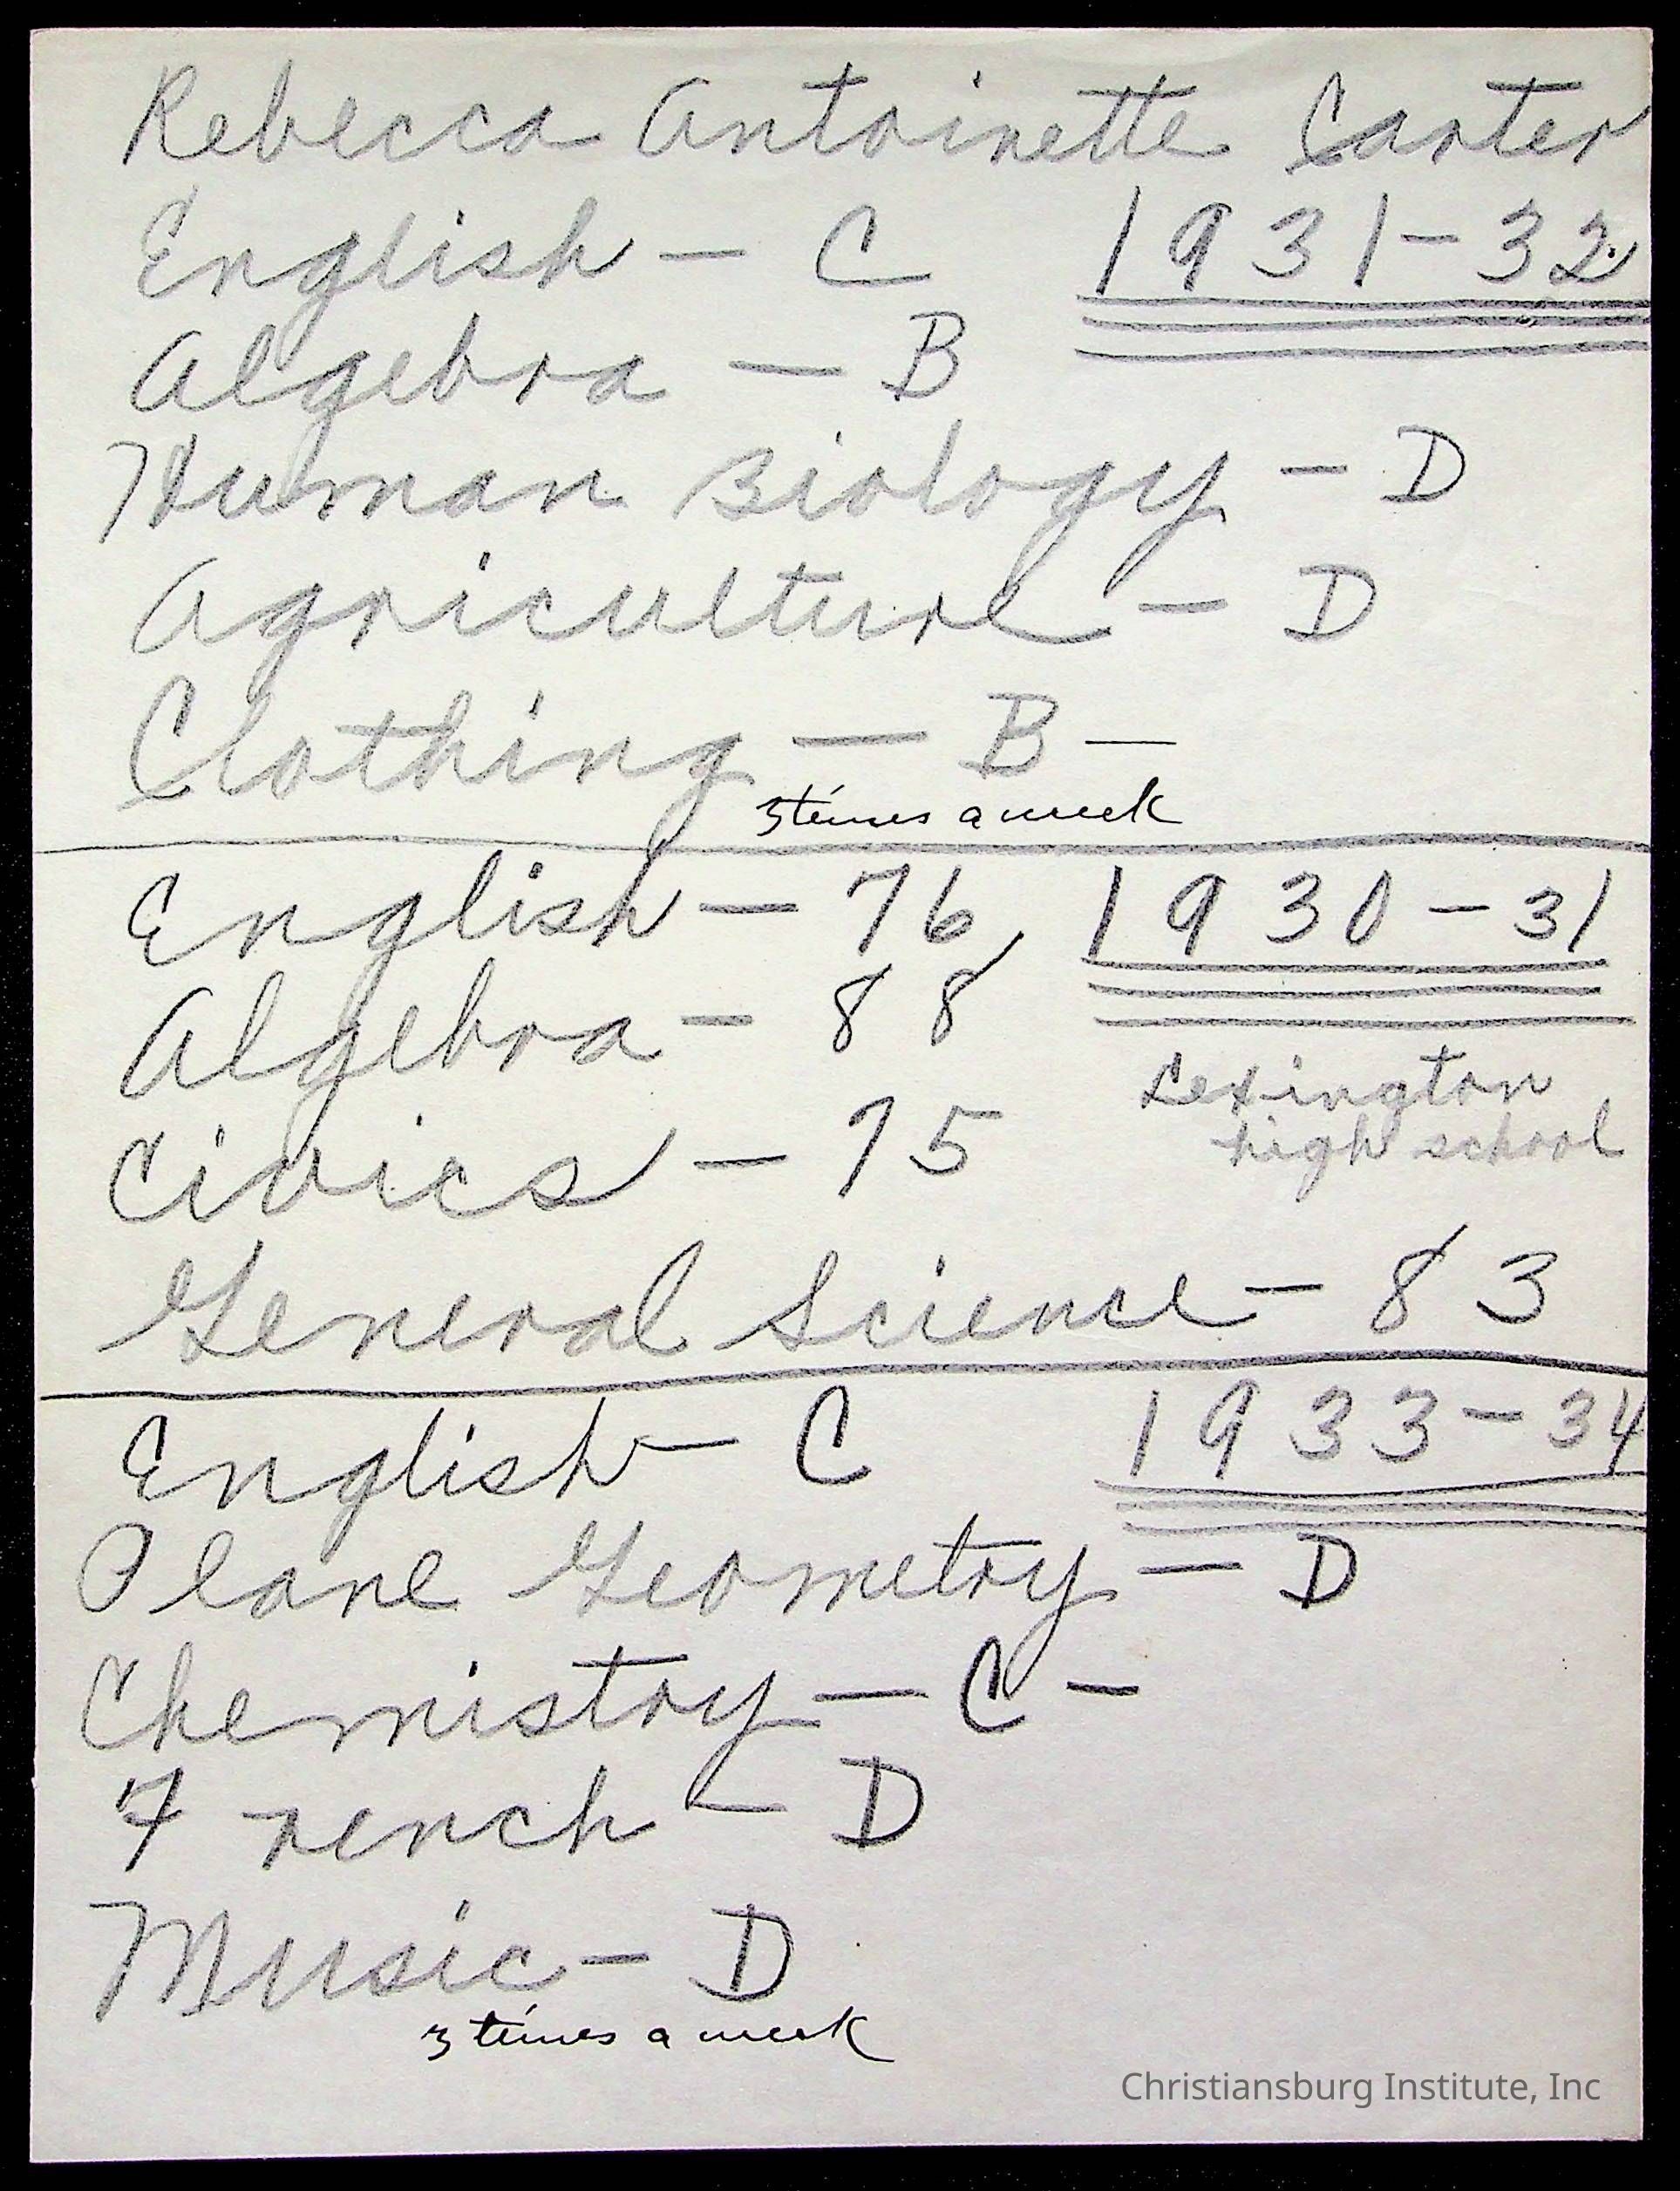 Rebecca Antoinette Carter
English - C 1931-32
Algebra - B
Human Biology - D
Agriculture - D
Clothing - B -
3 times a week
English - 76 1930-31
Algebra - 88
Lexington
high school
Civics - 75
General Science - 83
English - C 1933-34
Plane Geometry - D
Chemistry - C -
French - D
Music - D
3 times a week
Christiansburg Institute, Inc